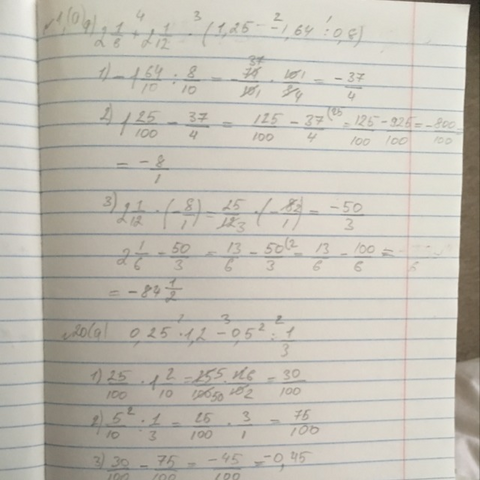 2 1/8 + 2 1/12 · (1,25 - 1,64 : 0,8)
1) -1 64/10 : 8/10 = · = -37/4
2) 1 25/100 - 37/4 = 125/100 - 37/4 = 125/100 - 925/100 = -800/100 =
= -8/1
3) 2 1/12 · (-8/1) = 25/12 · (-8/1) = -50/3
2 1/6 - 50/3 = 13/6 - 50/3 = 13/6 - 100/6 =
= -84 1/2
20(а) 0,25 · 1,2 - 0,5² : 1/3
1) 25/100 · 1 2/10 = = 30/100
2) 5²/10 : 1/3 = 25/100 · 3/1 = 75/100
3) 30/100 - 75/100 = -45/100 = -0,45